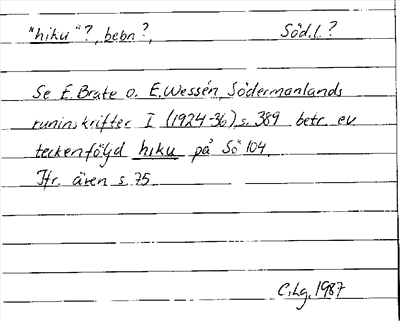 "hiku"?, bebn?, Söd.l.?
Se E. Brate o. E. Wessén, Södermanlands
runinskrifter I (1924-36), s. 389 betr. ev.
teckenföljd hiku på Sö 104.
Jfr. även s. 75
C.Lg. 1987